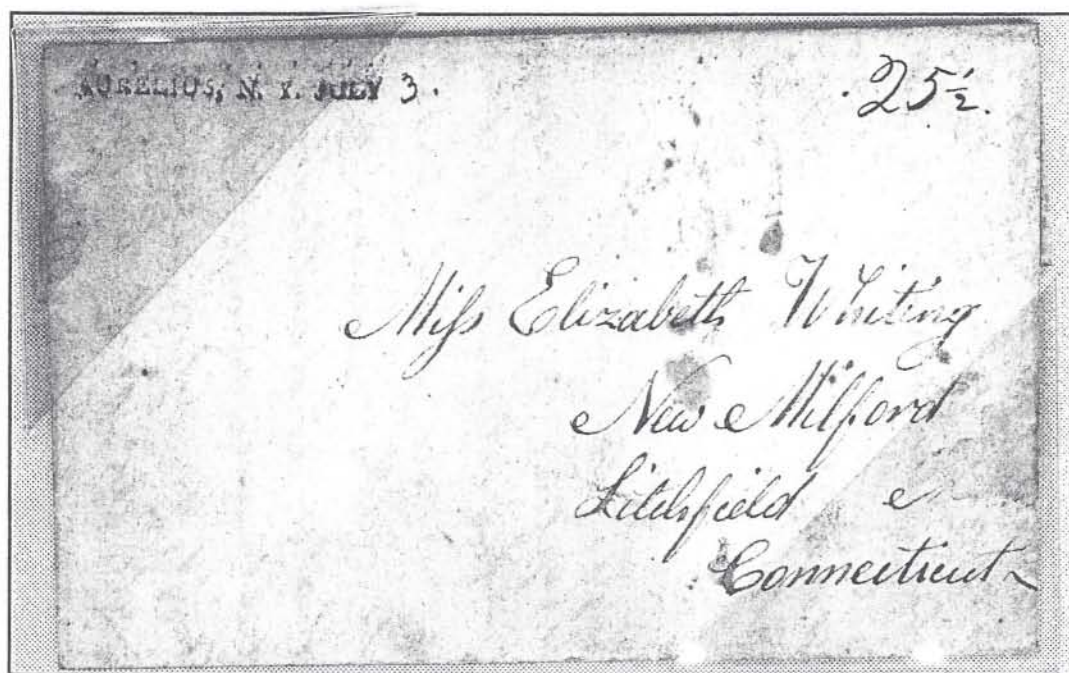 AURELIUS, N. Y. JULY 3.
25½.
Miſs Elizabeth Whiting
New Milford
Litchfield
Connecticut